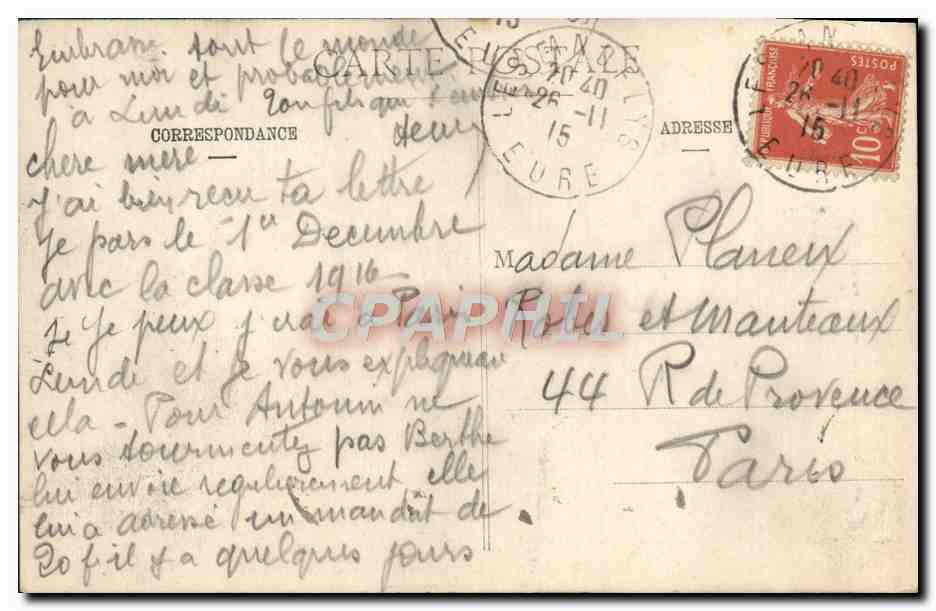 CARTE POSTALE
CORRESPONDANCE
ADRESSE
chere mere
J'ai bien recu ta lettre
Je pars le 1er Decembre
avec la classe 1916
Si Je peux j'irai a Paris
Lundi et je vous expliquerai
cela - Pour Antonin ne
vous tourmentez pas Berthe
lui envoie regulierement elle
lui a adressé un mandat de
20 f il y a quelques jours
Embrasse tout le monde
pour moi et probablement
à Lundi Ton fils qui t'embrasse
Henri
Madame Planeix
Robes et Manteaux
44 R de Provence
Paris
LES ANDELYS
20 40
26 -11
15
EURE
LES AN
20 40
26 -11
15
EURE
REPUBLIQUE FRANÇAISE
POSTES
10 C
15
CPAPHIL